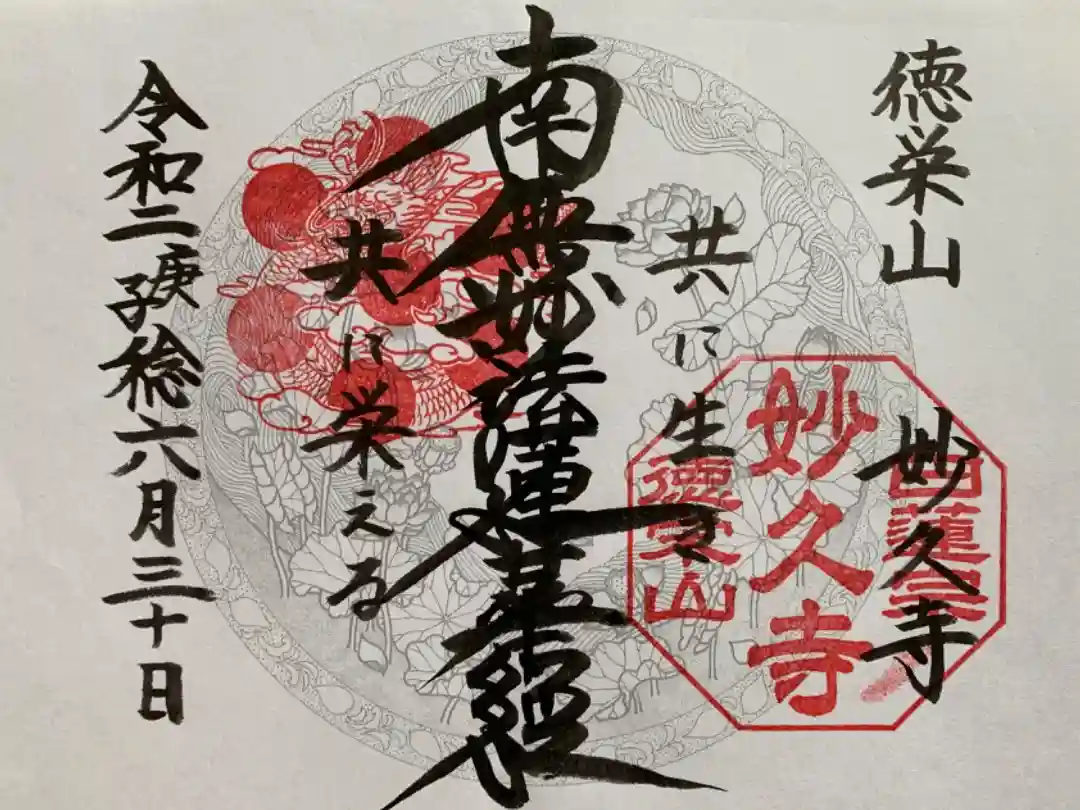 徳栄山　妙久寺
日蓮宗
妙久寺
德榮山
共に生き
南無妙法蓮華經
共に栄える
令和二庚子稔六月三十日